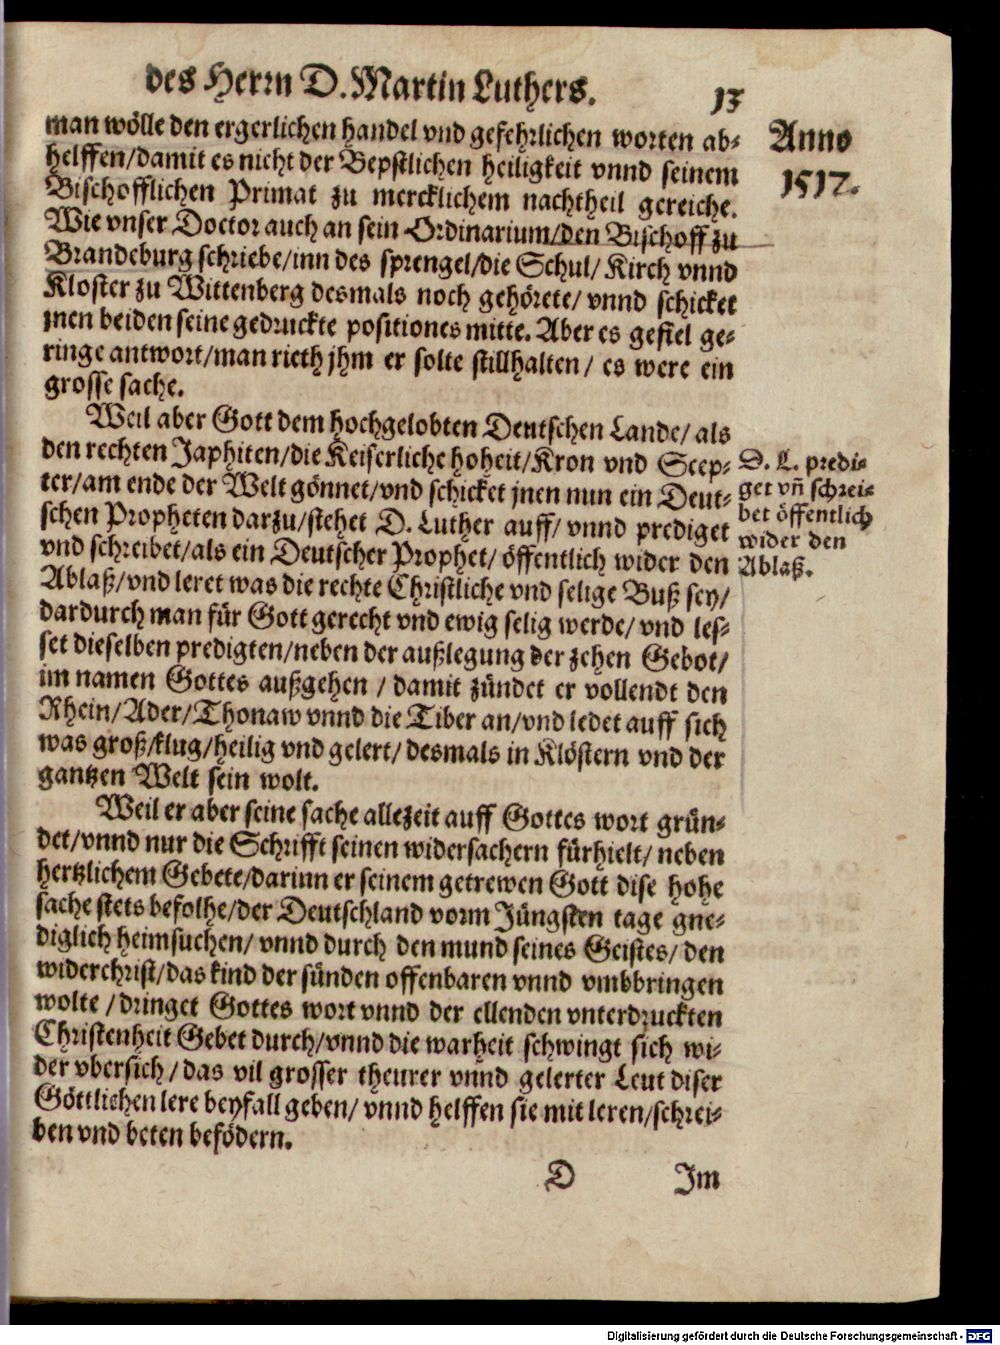 des Herrn D. Martin Luthers.
13
man wölle den ergerlichen handel vnd gefehrlichen worten ab-
helffen/damit es nicht der Bepstlichen heiligkeit vnnd seinem
Bischofflichen Primat zu mercklichem nachtheil gereiche.
Wie vnser Doctor auch an sein Ordinarium/den Bischoff zu
Brandeburg schriebe/inn des sprengel/die Schul/ Kirch vnnd
Kloster zu Wittenberg desmals noch gehörete/ vnnd schicket
jnen beiden seine gedruckte positiones mitte. Aber es gefiel ge-
ringe antwort/man rieth jhm er solte stillhalten/ es were ein
grosse sache.
Anno
1517.
Weil aber Gott dem hochgelobten Deutschen Lande/ als
den rechten Japhiten/die Keiserliche hoheit/Kron vnd Scep-
ter/am ende der Welt gönnet/vnd schicket jnen nun ein Deut-
schen Propheten darzu/stehet D. Luther auff/ vnnd prediget
vnd schreibet/als ein Deutscher Prophet/ öffentlich wider den
Ablaß/vnd leret was die rechte Christliche vnd selige Buß sey/
dardurch man für Gott gerecht vnd ewig selig werde/ vnd les-
set dieselben predigten/neben der außlegung der zehen Gebot/
im namen Gottes außgehen / damit zündet er vollendt den
Rhein/Ader/Thonaw vnnd die Tiber an/vnd ledet auff sich
was groß/klug/heilig vnd gelert/ desmals in Klöstern vnd der
gantzen Welt sein wolt.
D. L. predi-
get vñ schrei-
bet öffentlich
wider den
Ablaß.
Weil er aber seine sache allezeit auff Gottes wort grün-
det/vnnd nur die Schrifft seinen widersachern fürhielt/ neben
hertzlichem Gebete/darinn er seinem getrewen Gott dise hohe
sache stets befolhe/der Deutschland vorm Jüngsten tage gne-
diglich heimsuchen/ vnnd durch den mund seines Geistes/ den
widerchrist/das kind der sünden offenbaren vnnd vmbbringen
wolte / dringet Gottes wort vnnd der ellenden vnterdruckten
Christenheit Gebet durch/vnnd die warheit schwingt sich wi-
der vbersich/das vil grosser theurer vnnd gelerter Leut diser
Göttlichen lere beyfall geben/ vnnd helffen sie mit leren/schrei-
ben vnd beten befödern.
D
Im
Digitalisierung gefördert durch die Deutsche Forschungsgemeinschaft - DFG